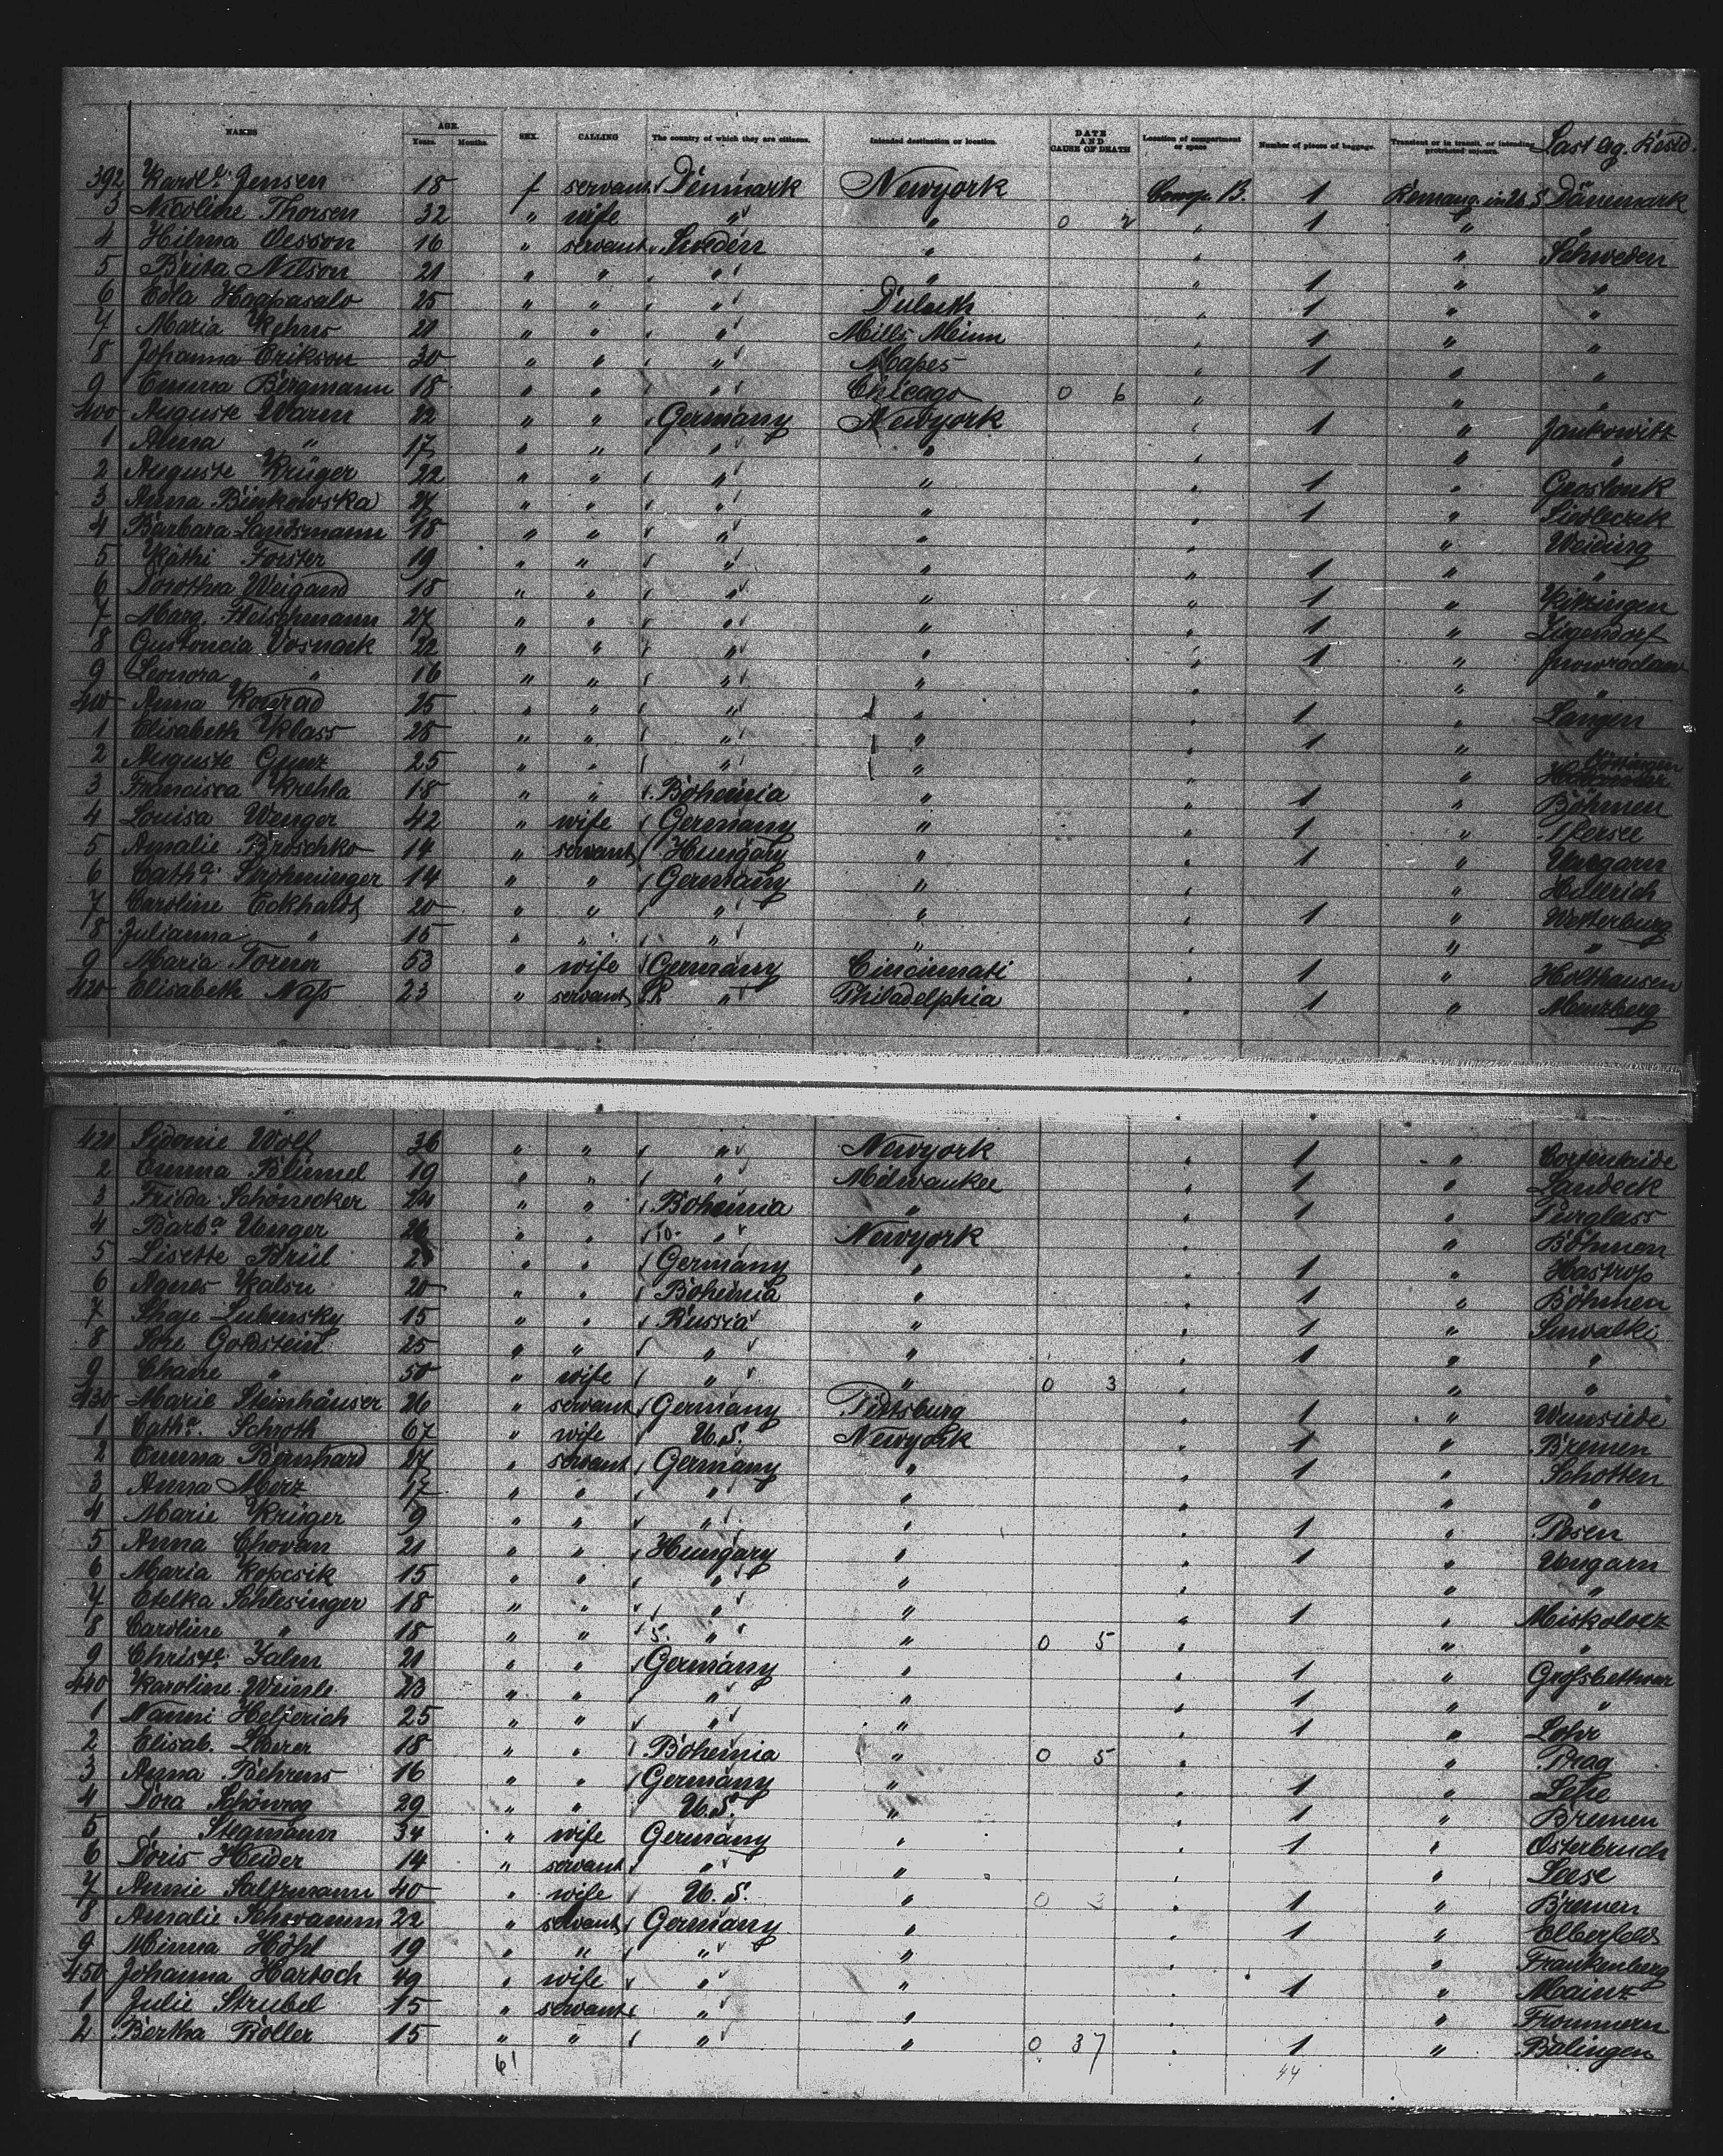 NAMES AGE. Years. Months. SEX. CALLING The country of which they are citizens. Intended destination or location. DATE AND CAUSE OF DEATH Location of compartment or space Number of pieces of baggage. Transient or in transit, or intending protracted sojourn. Last leg. Resid.
392 Jensen 18 f servant Denmark Newyork Comp. B. 1 Dänemark
3 Nicoline Thorsen 32 " wife " " 0 2 " 1 " "
4 Hilma Oesson 16 " servant Sweden " " Schweden
5 Brita Nilson 21 " " " " " 1 " "
6 Edla Haapasalo 25 " " " Duluth " 1 " "
7 Maria 21 " " " Mills Minn " 1 " "
8 Johanna Erikson 30 " " " Mapes " 1 " "
9 Emma Bergmann 18 " " " Chicago 0 6 " " "
400 Auguste Warm 22 " " Germany Newyork " 1 " Jankowitz
1 Anna " 17 " " " " " " "
2 Auguste Krüger 22 " " " " " 1 "
3 Anna Binkowska 27 " " " " " 1 " Siedleczek
4 Barbara Landsmann 18 " " " " " " Weiding
5 Käthi Forster 19 " " " " " 1 " "
6 Dorothea Weigand 18 " " " " " 1 " Kitzingen
7 Marg. Fleischmann 27 " " " " " 1 "
8 Vosnack 22 " " " " " 1 " Inowraclaw
9 Leonora " 16 " " " " " " "
410 Anna Konrad 25 " " " " " 1 " Langen
1 Elisabeth Klass 28 " " " " " 1 "
2 Auguste Gunz 25 " " " " " "
3 Francisca Krehla 18 " " Bohemia " " 1 " Böhmen
4 Louisa Wenger 42 " wife Germany " " 1 " Pfersee
5 Amalie Broschko 14 " servant Hungary " " 1 " Ungarn
6 Catha. Strohminger 14 " " Germany " " "
7 Caroline Eckhardt 20 " " " " " 1 " Westerburg
8 Julianna " 15 " " " " " " "
9 Maria Torner 53 " wife Germany Cincinnati " 1 " Holthausen
420 Elisabeth Nass 23 " servant " Philadelphia " 1 " Menzberg
420 Sidonie Wolf 36 " " " Newyork " 1 "
2 Emma Bliemel 19 " " " Milwaukee " 1 " Landeck
3 Frieda Schönecker 24 " " Bohemia " " 1 " Purglass
4 Barba. Unger " " " Newyork " " Böhmen
5 Lisette Brül " " Germany " " 1 " Hastrop
6 Agnes Kalsu 20 " " Bohemia " " 1 " Böhmen
7 Lubinsky 15 " " Russia " " 1 " Suwalki
8 Sore Goldstein 25 " " " " " 1 " "
9 Chane " 50 " wife " " 0 3 " " "
430 Marie Steinhäuser 26 " servant Germany Pittsburg " 1 " Wunsiede
1 Catha. Schroth 67 " wife U.S. Newyork " 1 " Bremen
2 Emma Bernhard 27 " servant Germany " " 1 " Schotten
3 Anna Merz 17 " " " " " " "
4 Marie Krüger 9 " " " " " 1 " Posen
5 Anna Chovan 21 " " Hungary " " 1 " Ungarn
6 Maria Kopcsik 15 " " " " " " "
7 Etelka Schlesinger 18 " " " " " 1 " Miskolocz
8 Caroline " 18 " " 5. " " 0 5 " " "
9 Christe. Zalm 21 " " Germany " " 1 " Grossbettwar
440 Karoline Weinle 23 " " " " " 1 " "
1 Nanni Helferich 25 " " " " " 1 " Lohr
2 Elisab. 18 " " Bohemia " 0 5 " " Prag
3 Anna Behrens 16 " " Germany " " 1 " Lehe
4 Dora Schönrog 29 " " U.S. " " 1 " Bremen
5 " Stegmann 34 " wife Germany " " 1 " Osterbruch
6 Doris Heider 14 " servant " " " " Leese
7 Annie Saltzmann 40 " wife U.S. " 0 3 " 1 " Bremen
8 Amalie Schwamm 22 " servant Germany " " 1 " Elberfeld
9 Minna Höhl 19 " " " " " " Frankenberg
450 Johanna Hartoch 49 " wife " " " 1 " Mainz
1 Julie Strubel 15 " servant " " " " Frommern
2 Bertha Roller 15 " " " " 0 37 " 1 " Balingen
61 44